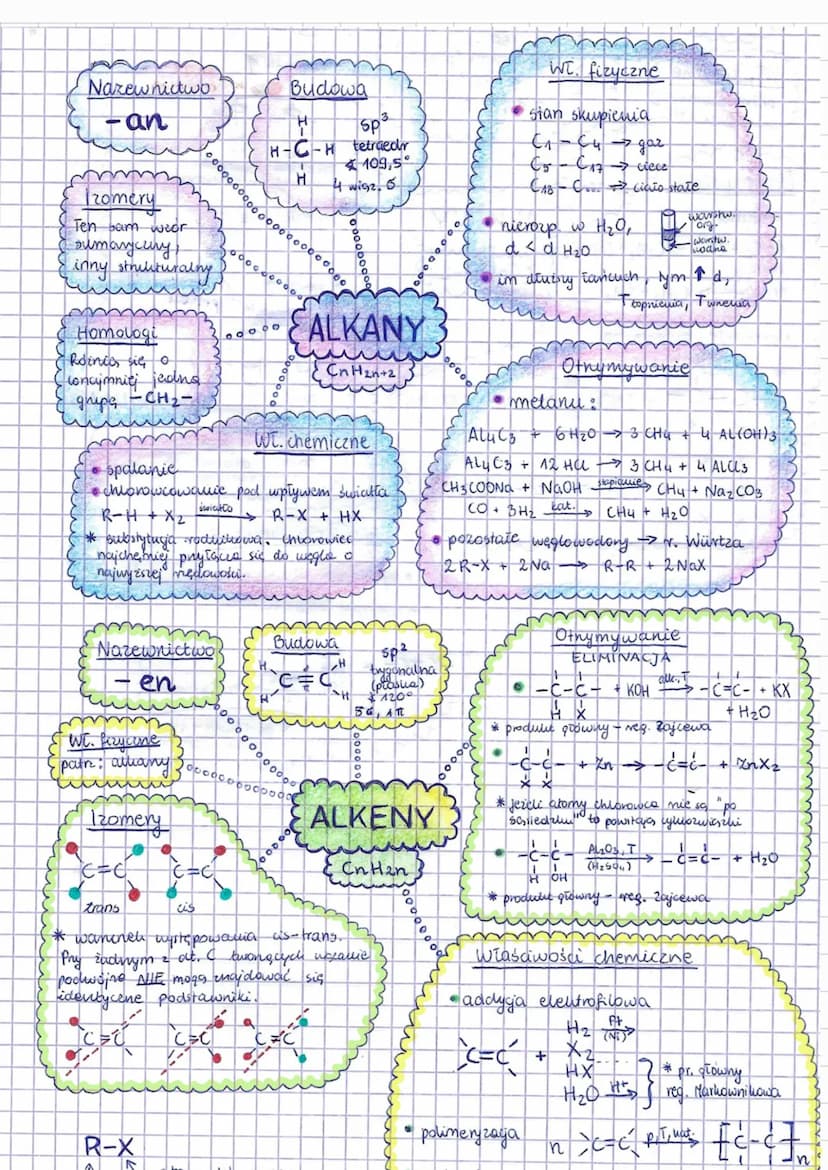 Nazewnictwo
-an
Budowa
H
H-C-H
H
sp³
tetraedr
∢ 109,5°
4 wiąz. σ
Wł. fizyczne
stan skupienia
C1 – C4 → gaz
C5 – C17 → ciecz
C18 – C... ⇒ ciało stałe
nierozp. w H2O,
d < d H2O
warstw.
org.
warstw.
wodna
im dłuższy łańcuch, tym ↑ d,
T topnienia, T wrzenia
Izomery
Ten sam wzór
sumaryczny,
inny strukturalny
Homologi
Różnią się o
conajmniej jedną
grupę -CH2-
ALKANY
CnH2n+2
Otrzymywanie
metanu:
Al4C3 + 6H2O → 3 CH4 + 4 Al(OH)3
Al4C3 + 12 HCl → 3 CH4 + 4 AlCl3
CH3COONa + NaOH stapianie→ CH4 + Na2CO3
CO + 3H2 kat.→ CH4 + H2O
pozostałe węglowodory → r. Würtza
2R-X + 2Na → R-R + 2NaX
Wł. chemiczne
spalanie
chlorowcowanie pod wpływem światła
R-H + X2 światło→ R-X + HX
* substytucja rodnikowa. chlorowiec
najchętniej przyłącza się do węgla o
najwyższej rzędowości.
Nazewnictwo
-en
Budowa
H H
C=C
H H
sp²
trygonalna
(płaska)
∢ 120°
5σ, 1π
Wł. fizyczne
patrz: alkany
ALKENY
CnH2n
Otrzymywanie
ELIMINACJA
-C-C- + KOH alk.,T→ -C=C- + KX
H X + H2O
* produkt główny – reg. Zajcewa
-C-C- + Zn → -C=C- + ZnX2
X X
* jeżeli atomy chlorowca nie są "po
sąsiedzku" to powstają cyklozwiązki
-C-C- Al2O3, T (H2SO4)→ -C=C- + H2O
H OH
* produkt główny – reg. Zajcewa
Izomery
C=C C=C
trans cis
* warunek występowania cis-trans.
Przy żadnym z at. C tworzących wiązanie
podwójne NIE mogą znajdować się
identyczne podstawniki.
C=C C=C C=C
Właściwości chemiczne
addycja elektrofilowa
C=C +
H2 Pt (Ni)→
X2
HX
H2O H+→
* pr. główny
reg. Markownikowa
polimeryzacja
n C=C p,T,kat.→ [C-C]n
R-X